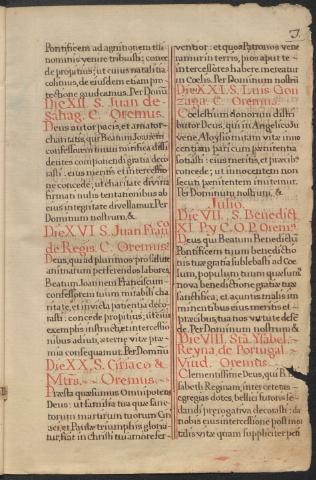 J.
Pontificem ad agnitionem tui
nominis venire tribuisti: conce
de propitius; ut cuius natalitia
colimus, de eiusdem etiam pro
tectione gaudeamus. Per Dominũ
Die XII. S. Juan de
Sahag. C. Oremus.
Deus autor pacis, et amator
charitatis, qui Beatum Joannẽ
confessorem tuum mirifica dissi
dentes componendi gratia deco
rasti: eius meritis et intercessio
ne concede; ut in tua charitate
firmati nullis tentationibus ab
eius integritate divellamur. Per
Dominum nostrum, &
Die XVI S. Juan Fran.co
de Regis. C. Oremus
Deus, qui ad plurimos pro salute
animarum perferendos labores,
Beatum Joannem Franciscum
confessorem tuum mirabili cha
ritate, et invicta patientia deco
rasti: concede propitius; ut eius
exemplis instructi, et intercessio
nibus adiuti, æternæ vitæ præ
mia consequamur. Per Dominũ
Die XX. S. Ciriaco &
Mtrs. Oremus.
Præsta quæsumus Omnipotens
Deus: ut familia tua quæ sanc
torum martirum tuorum Ciri
aci, et Paulæ triumphis gloria
tur, fiat in christi tui amore fer
ventior: et quos Patronos vene
ramur in terris, pios apud te
intercessores habere mereatur
in Cœlis. Per Dominum nostrũ
Die XXI. S. Luis Gon
zaga. C. Oremus.
Cœlestium donorum distri
butor Deus, qui in Angelico Ju
vene Aloysio miram vitæ inno
centiam pari cum pænitentia
sotiasti: eius meritis, et præcib9
concede; ut innocentem non
secuti, pænitentem imitemur.
Per Dominum nostrum, &
Julio.
Die VII. S. Benedict.
XI. P. y C. O. P. Oremus.
Deus, qui Beatum Benedictũ
Pontificem tuum benedictio
nis tuæ gratia sublebasti ad Cœ
lum, populum tuum quæsum9
nova benedictione gratiæ tuæ
sanctifica; et a cunctis malis im
minentibus eius meritis et
præcibus, tua nos virtute defẽ
de. Per Dominum nostrum &
Die VIII. Sta. Ysabel.
Reyna de Portugal.
Viud. Oremus
Clementissime Deus, qui B. Eli
sabeth Reginam, inter cæteras
egregias dotes, bellici furoris se
dandi prærogativa decorasti: da
nobis eius intercessione post mor
talis vitæ quam suppliciter peti